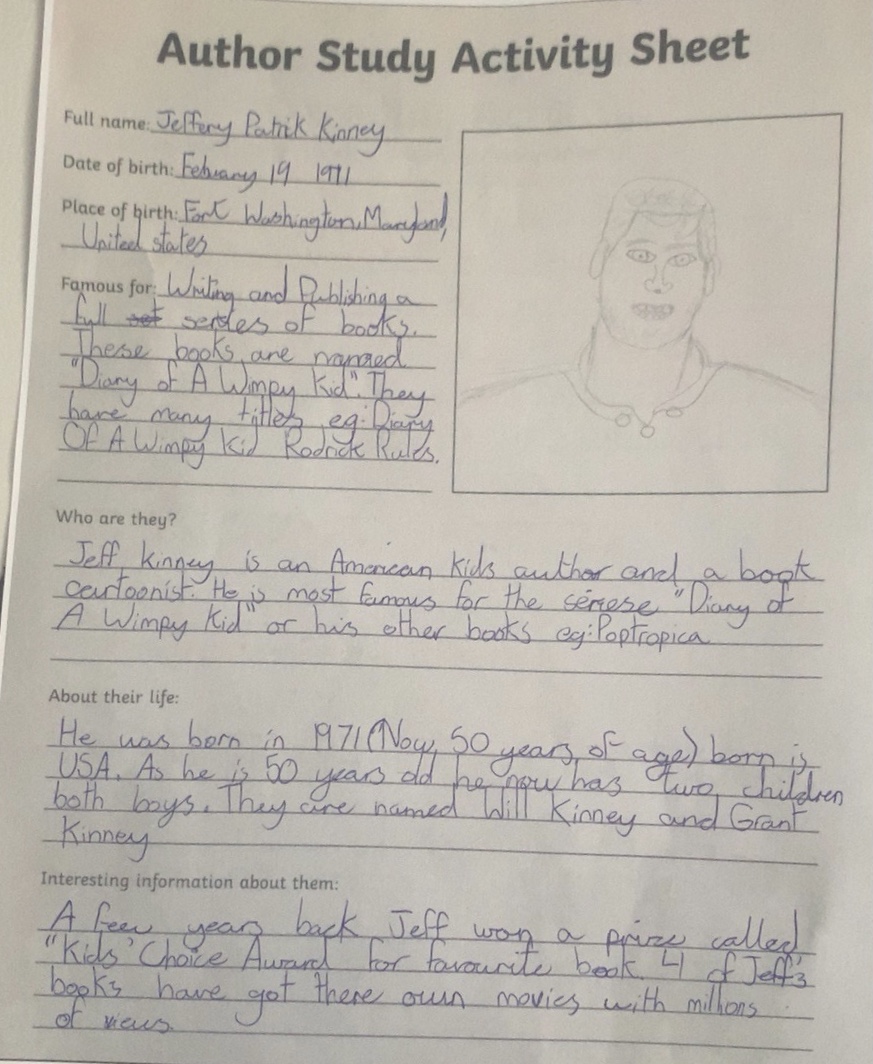 Author Study Activity Sheet
Full name: Jeffery Patrik Kinney
Date of birth: Febuary 19 1971
Place of birth: Fort Washington, Maryland,
United states
Famous for: Writing and Publishing a
full set serdes of books.
These books are named
"Diary of A Wimpy Kid". They
have many titles eg: Diary
Of A Wimpy Kid Rodrick Rules.
Who are they?
Jeff Kinney is an American Kids author and a book
cartoonist. He is most famous for the seriese "Diary of
A Wimpy Kid" or his other books eg: Poptropica
About their life:
He was born in 1971 (Now, 50 years of age) born is
USA. As he is 50 years old he now has two children
both boys. They are named Will Kinney and Grant
Kinney
Interesting information about them:
A few years back Jeff won a prize called
"Kids' Choice Award for favourite book. 4 of Jeff's
books have got there own movies with millions
of views.